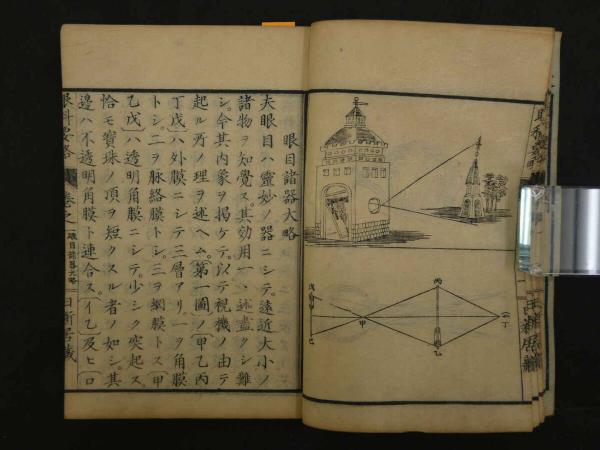 眼目諸器大略
夫眼目ハ靈妙ノ器ニシテ。遠近大小ノ
諸物ヲ知覺ス。其効用一々述盡クシ難
シ。今其内象ヲ掲ケテ。以テ視機ノ由テ
起ル所ノ理ヲ述ヘム。〔第一圖〕ノ〔甲乙丙
丁戊〕ハ外膜ニシテ三層アリ。一ヲ角膜
トシ。二ヲ脉絡膜トシ。三ヲ網膜トス〔甲
乙戊〕ハ透明角膜ニシテ。少シク突起ス。
恰モ寶珠ノ頂ヲ短クスル者ノ如シ。其
邊ハ不透明角膜ト連合ス。〔イ乙〕及ヒ〔ロ
眼科要略
眼目諸器大略
日新居藏
丙
丁
戊
甲
乙
己